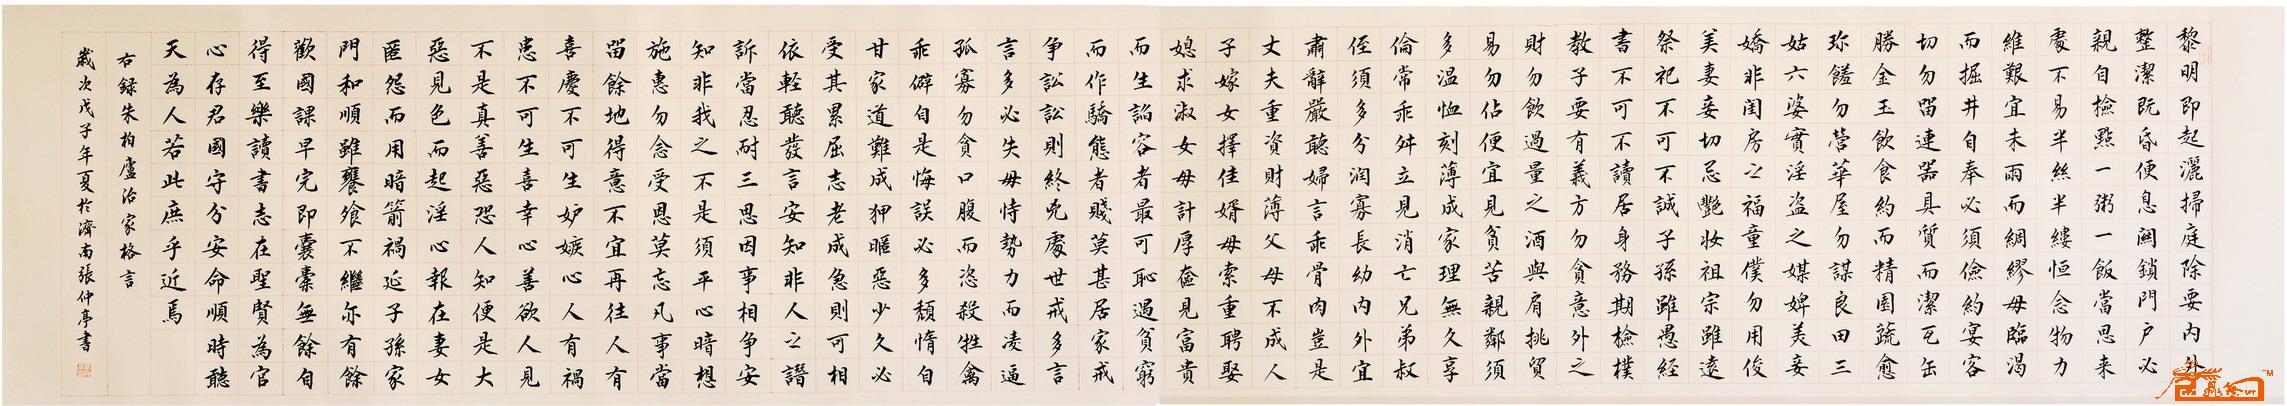 黎明即起灑掃庭除要内外
整潔既昏便息闗鎖門户必
親自撿點一粥一飯當思来
處不易半絲半縷恒念物力
維艱宜未雨而綢繆毋臨渴
而掘井自奉必須儉約宴客
切勿畱連器具質而潔瓦缶
勝金玉飲食約而精園蔬愈
珎饈勿營華屋勿謀良田三
姑六婆實淫盗之媒婢美妾
嬌非閨房之福童僕勿用俊
美妻妾切忌艷妆祖宗雖遠
祭祀不可不誠子孫雖愚經
書不可不讀居身務期檢樸
教子要有義方勿貪意外之
財勿飲過量之酒與肩挑貿
易勿佔便宜見貧苦親鄰須
多温恤刻薄成家理無久享
倫常乖舛立見消亡兄弟叔
侄須多分潤寡長幼内外宜
肅辭嚴聽婦言乖骨肉豈是
丈夫重資財薄父母不成人
子嫁女擇佳婿毋索重聘娶
媳求淑女毋計厚奩見富貴
而生諂容者最可恥過貧窮
而作驕態者賤莫甚居家戒
争訟訟則終凶處世戒多言
言多必失毋恃勢力而凌逼
孤寡勿貪口腹而恣殺牲禽
乖僻自是悔誤必多頹惰自
甘家道難成狎暱惡少久必
受其累屈志老成急則可相
依輕聽發言安知非人之譖
訴當忍耐三思因事相争安
知非我之不是須平心暗想
施惠勿念受恩莫忘凡事當
畱餘地得意不宜再往人有
喜慶不可生妒嫉心人有禍
患不可生喜幸心善欲人見
不是真善惡恐人知便是大
惡見色而起淫心報在妻女
匿怨而用暗箭禍延子孫家
門和順雖饔飧不繼亦有餘
歡國課早完即囊橐無餘自
得至樂讀書志在聖賢為官
心存君國守分安命順時聽
天為人若此庶乎近焉
右録朱柏廬治家格言
歲次戊子年夏於濟南張仲亭書